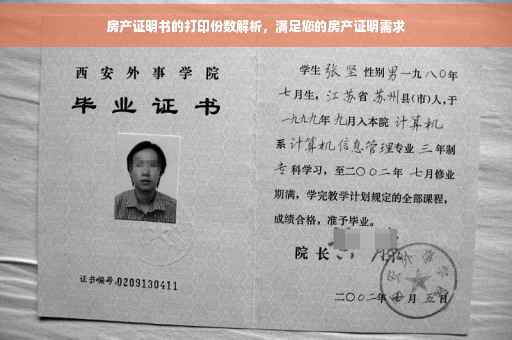 房产证明书的打印份数解析，满足您的房产证明需求
西安外事学院
毕业证书
证书编号:0209130411
学生 张坚 性别 男 一九八〇年
七月生，江苏省 苏州 县(市)人，于
一九九九年 九月入本院 计算机
系 计算机信息管理 专业 三 年制
专 科学习，至二〇〇二年 七月修业
期满，学完教学计划规定的全部课程，
成绩合格，准予毕业。
院长
二〇〇二年 月 五日